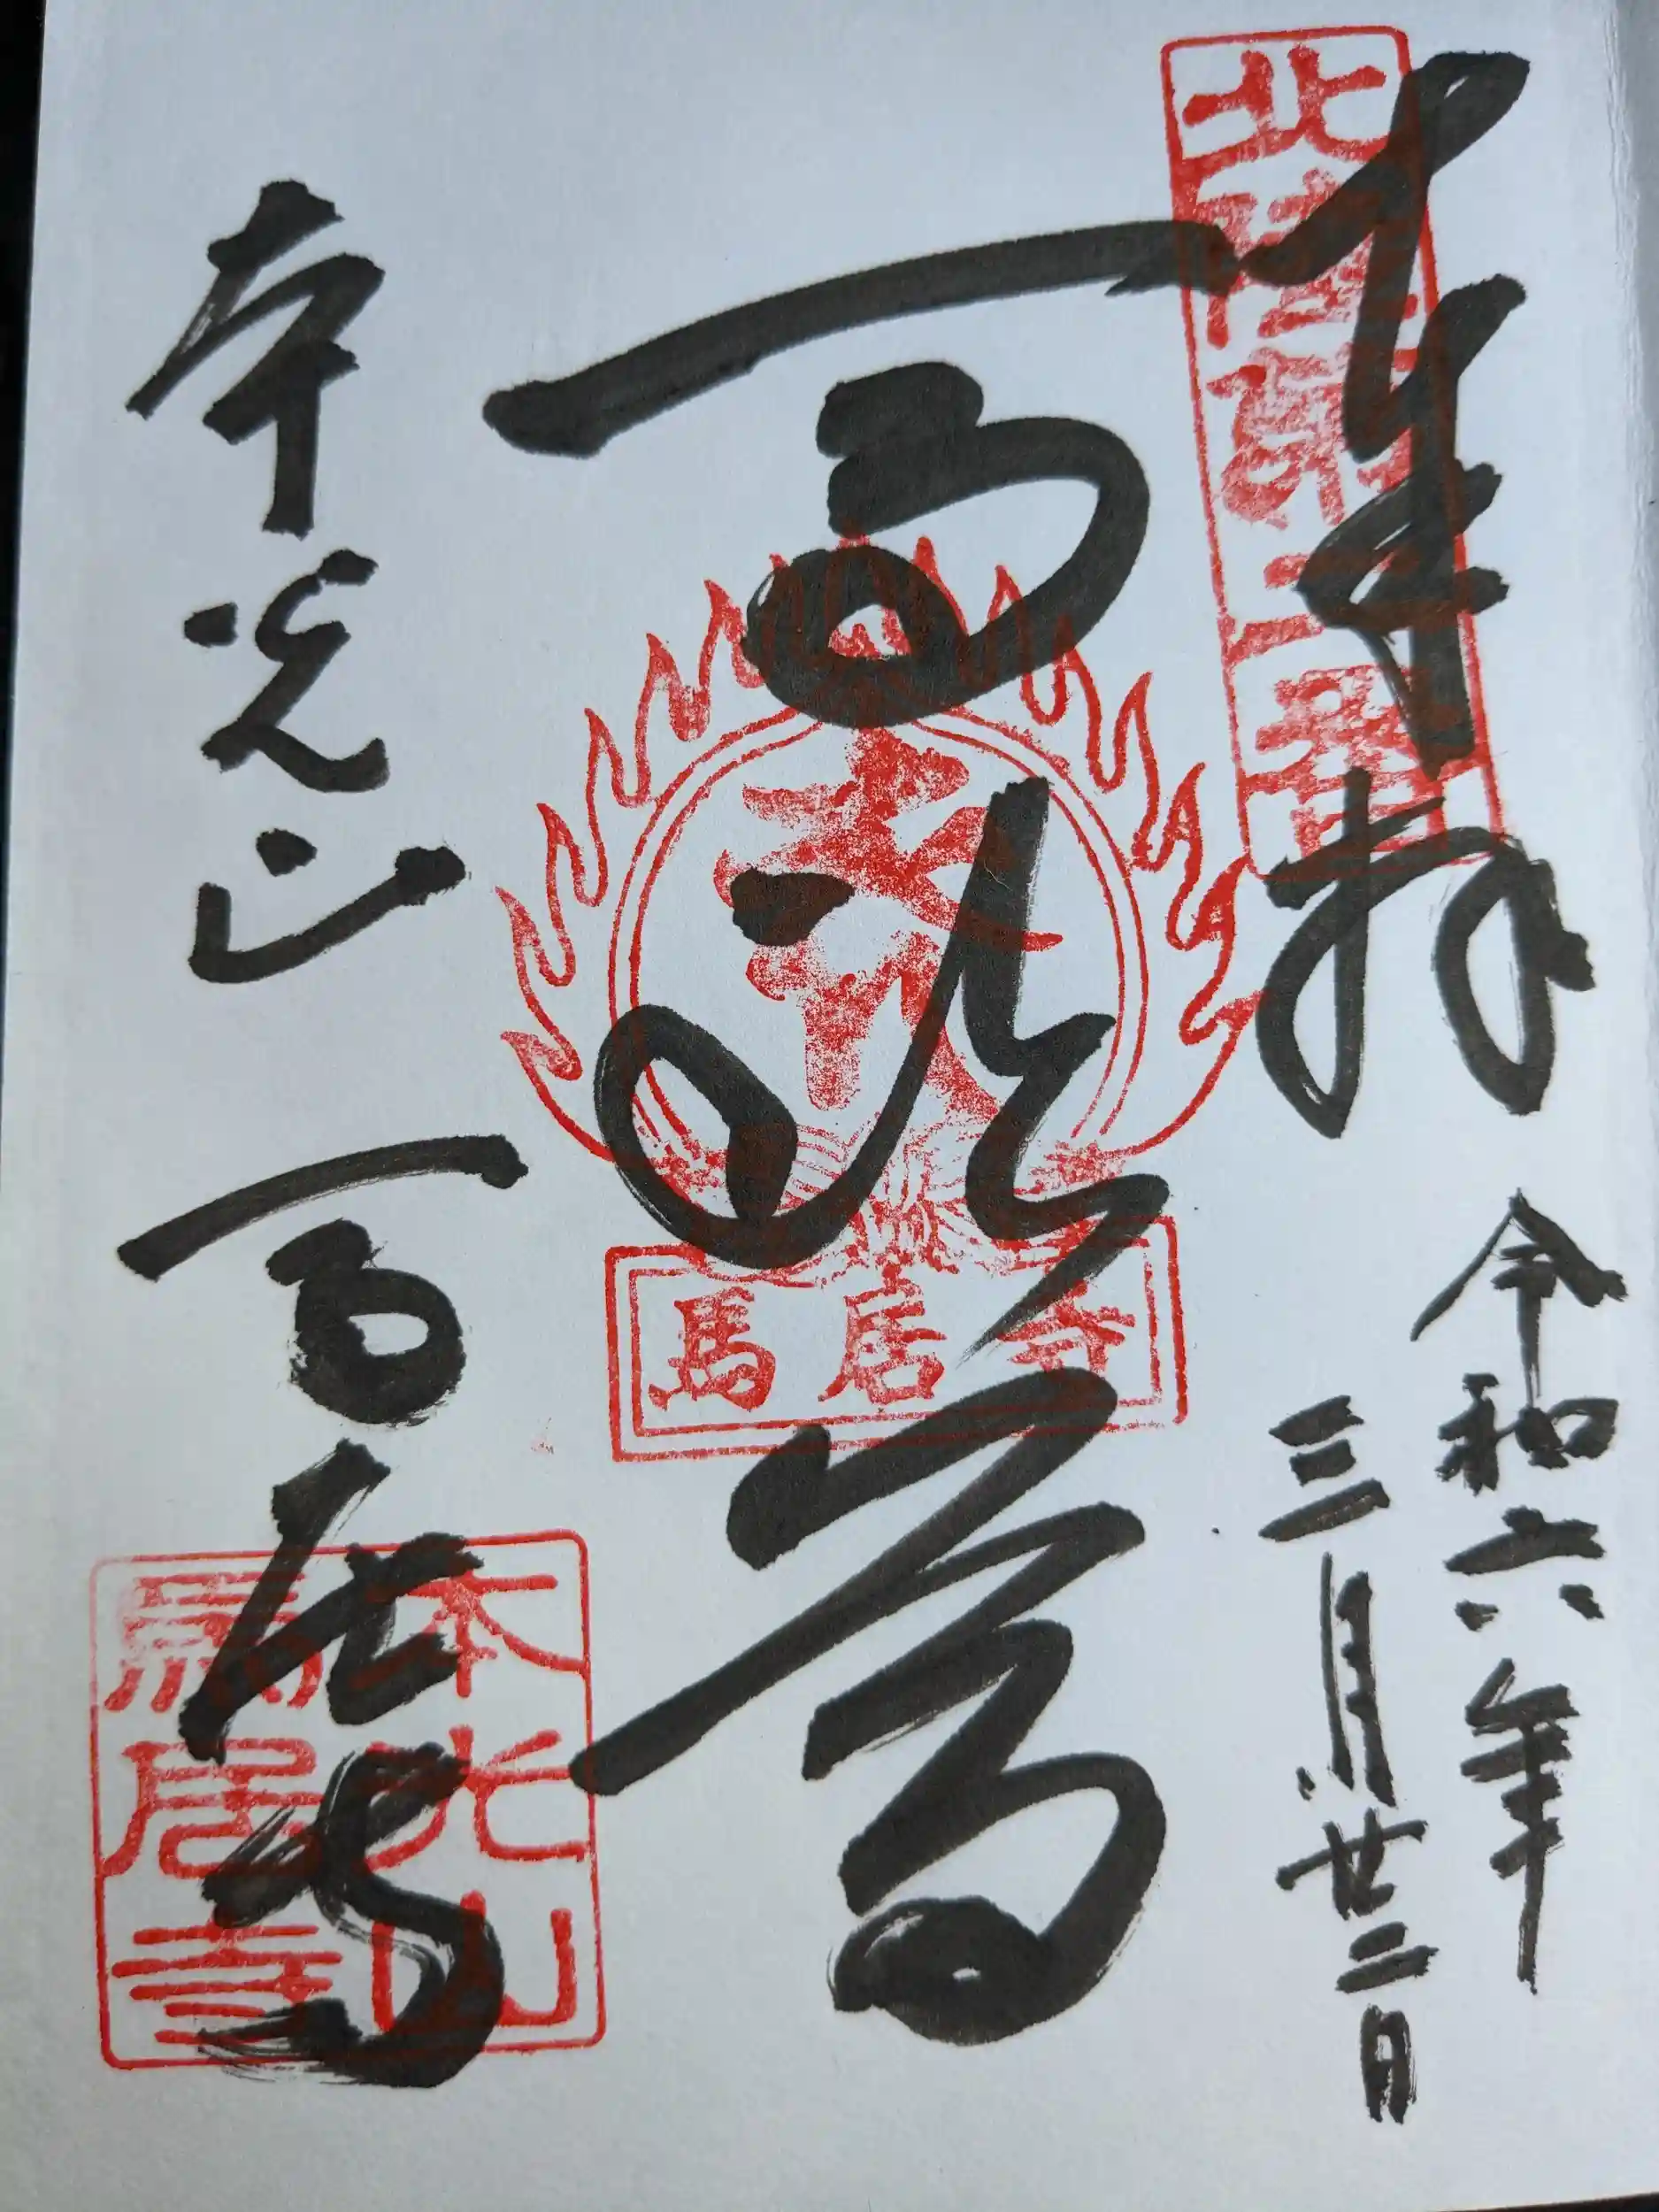 奉拝
令和六年
三月廿二日
北陸第二番
馬頭尊
馬居寺
本光山
馬居寺
本光山
馬居寺